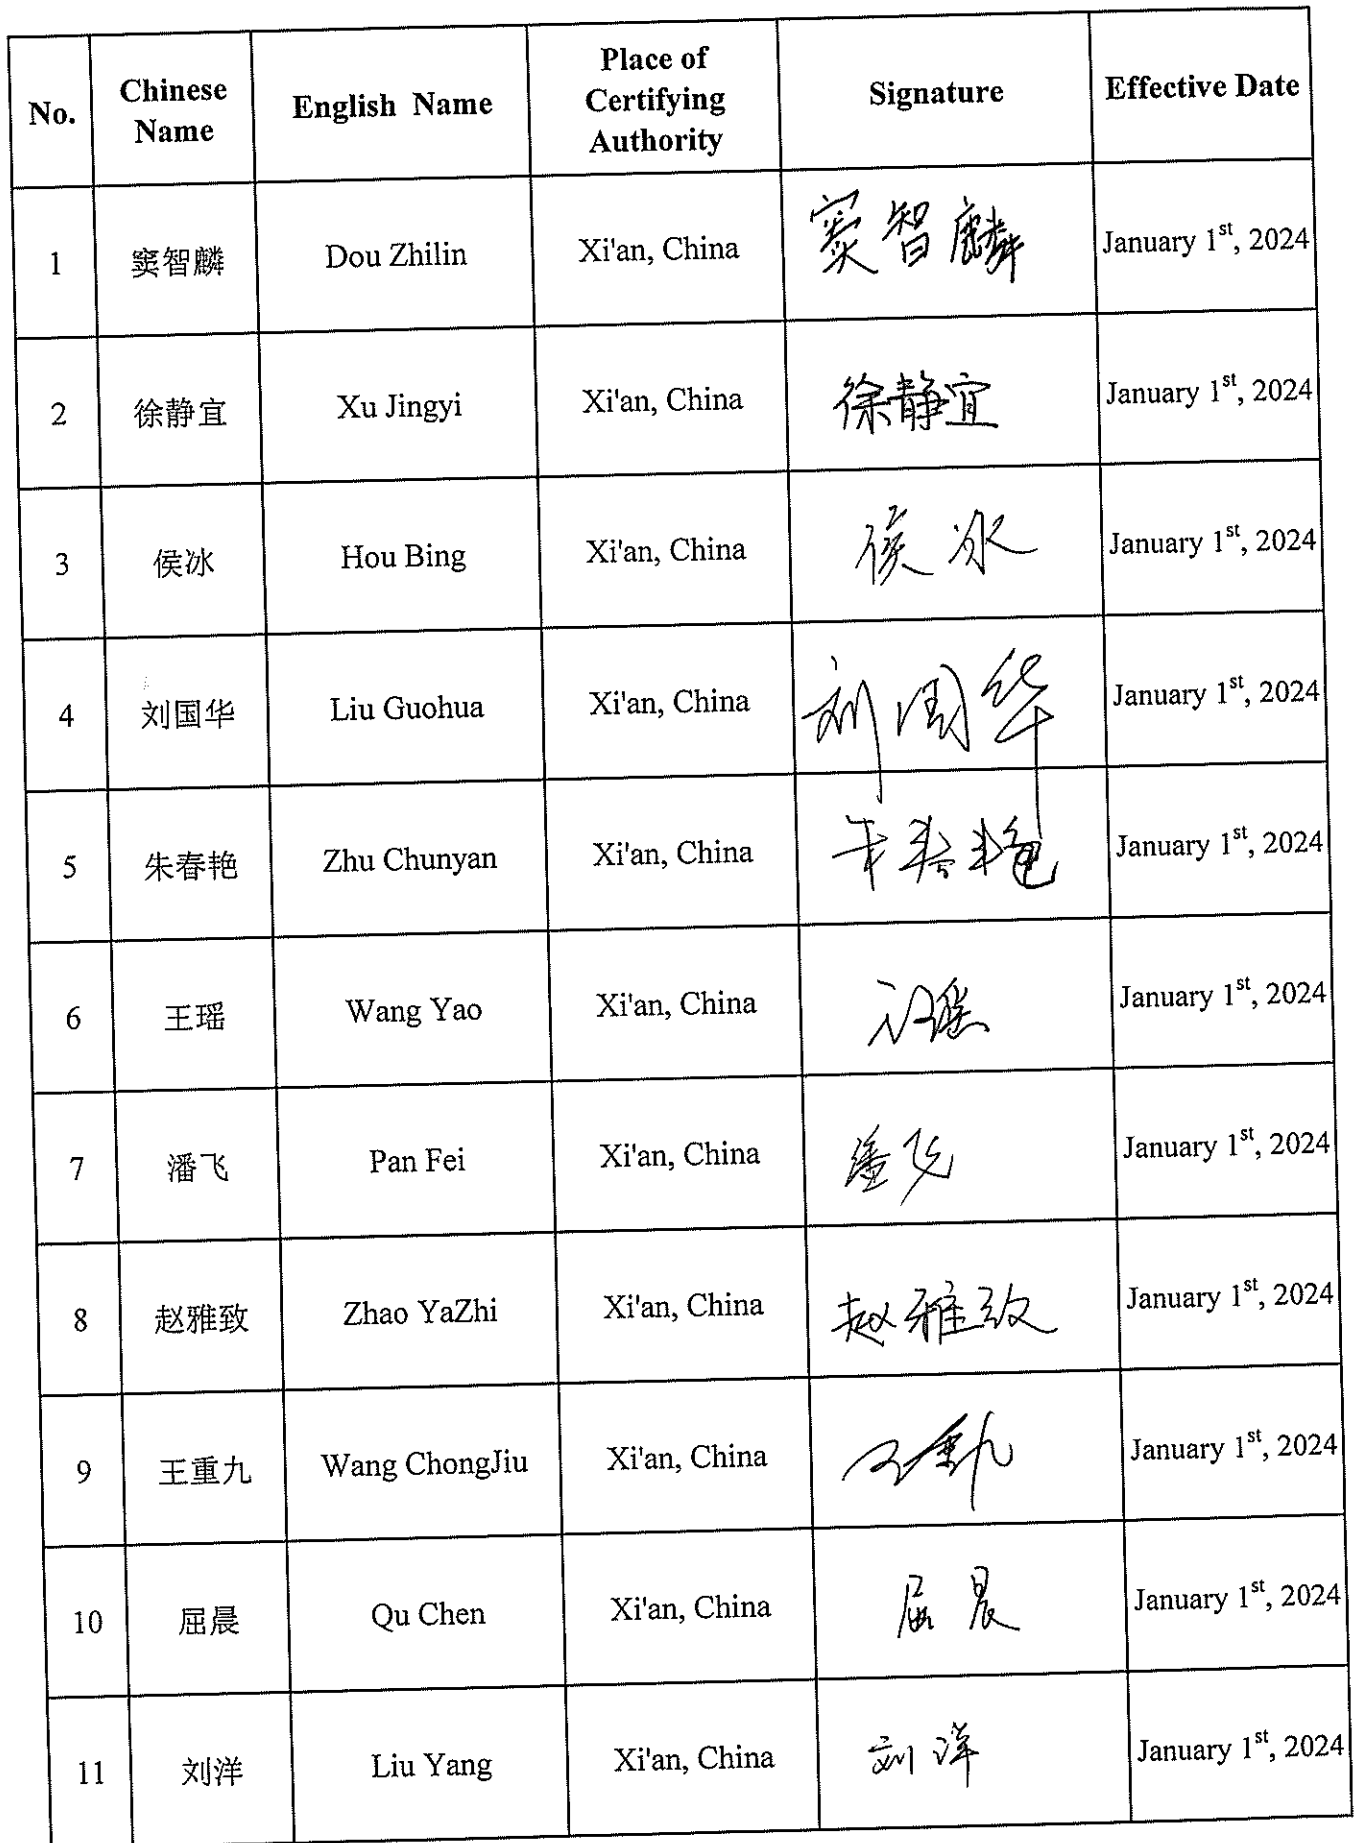 No. Chinese Name English Name Place of Certifying Authority Signature Effective Date
1 窦智麟 Dou Zhilin Xi'an, China 窦智麟 January 1st, 2024
2 徐静宜 Xu Jingyi Xi'an, China 徐静宜 January 1st, 2024
3 侯冰 Hou Bing Xi'an, China 侯冰 January 1st, 2024
4 刘国华 Liu Guohua Xi'an, China 刘国华 January 1st, 2024
5 朱春艳 Zhu Chunyan Xi'an, China 朱春艳 January 1st, 2024
6 王瑶 Wang Yao Xi'an, China 王瑶 January 1st, 2024
7 潘飞 Pan Fei Xi'an, China 潘飞 January 1st, 2024
8 赵雅致 Zhao YaZhi Xi'an, China 赵雅致 January 1st, 2024
9 王重九 Wang ChongJiu Xi'an, China 王重九 January 1st, 2024
10 屈晨 Qu Chen Xi'an, China 屈晨 January 1st, 2024
11 刘洋 Liu Yang Xi'an, China 刘洋 January 1st, 2024